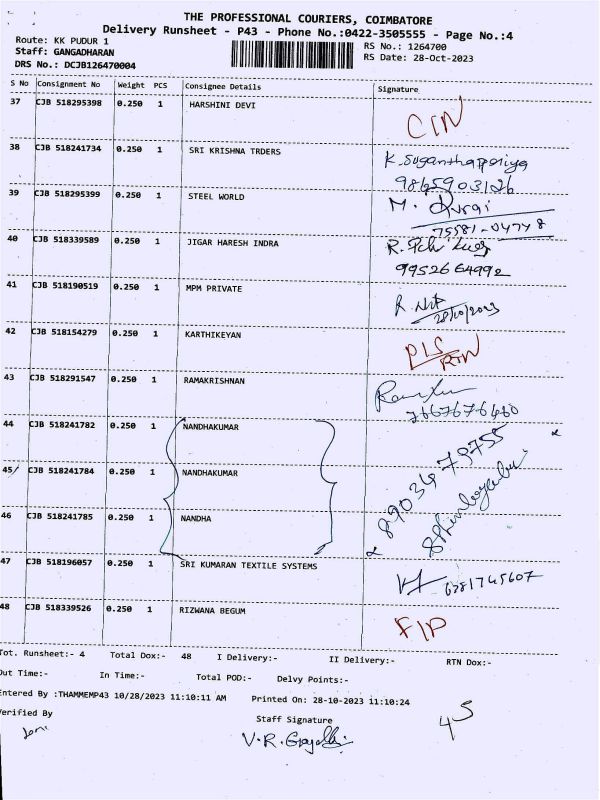 THE PROFESSIONAL COURIERS, COIMBATORE
Delivery Runsheet - P43 - Phone No.:0422-3505555 - Page No.:4
Route: KK PUDUR 1
RS No.: 1264700
Staff: GANGADHARAN
RS Date: 28-Oct-2023
DRS No.: DCJB126470004
S No Consignment No Weight PCS Consignee Details Signature
37 CJB 518295398 0.250 1 HARSHINI DEVI
38 CJB 518241734 0.250 1 SRI KRISHNA TRDERS K. Suganthapriya
9865903126
39 CJB 518295399 0.250 1 STEEL WORLD M. Durai
75581-04748
40 CJB 518339589 0.250 1 JIGAR HARESH INDRA R.
9952664992
41 CJB 518190519 0.250 1 MPM PRIVATE R.
28/10/2023
42 CJB 518154279 0.250 1 KARTHIKEYAN D/C
RTN
43 CJB 518291547 0.250 1 RAMAKRISHNAN
7667676460
44 CJB 518241782 0.250 1 NANDHAKUMAR
45/ CJB 518241784 0.250 1 NANDHAKUMAR 8903479755
46 CJB 518241785 0.250 1 NANDHA
47 CJB 518196057 0.250 1 SRI KUMARAN TEXTILE SYSTEMS 6381745607
48 CJB 518339526 0.250 1 RIZWANA BEGUM F/P
Tot. Runsheet:- 4 Total Dox:- 48 I Delivery:- II Delivery:- RTN Dox:-
Out Time:- In Time:- Total POD:- Delvy Points:-
Entered By :THAMMEMP43 10/28/2023 11:10:11 AM Printed On: 28-10-2023 11:10:24
Verified By
Staff Signature
45
V.R.